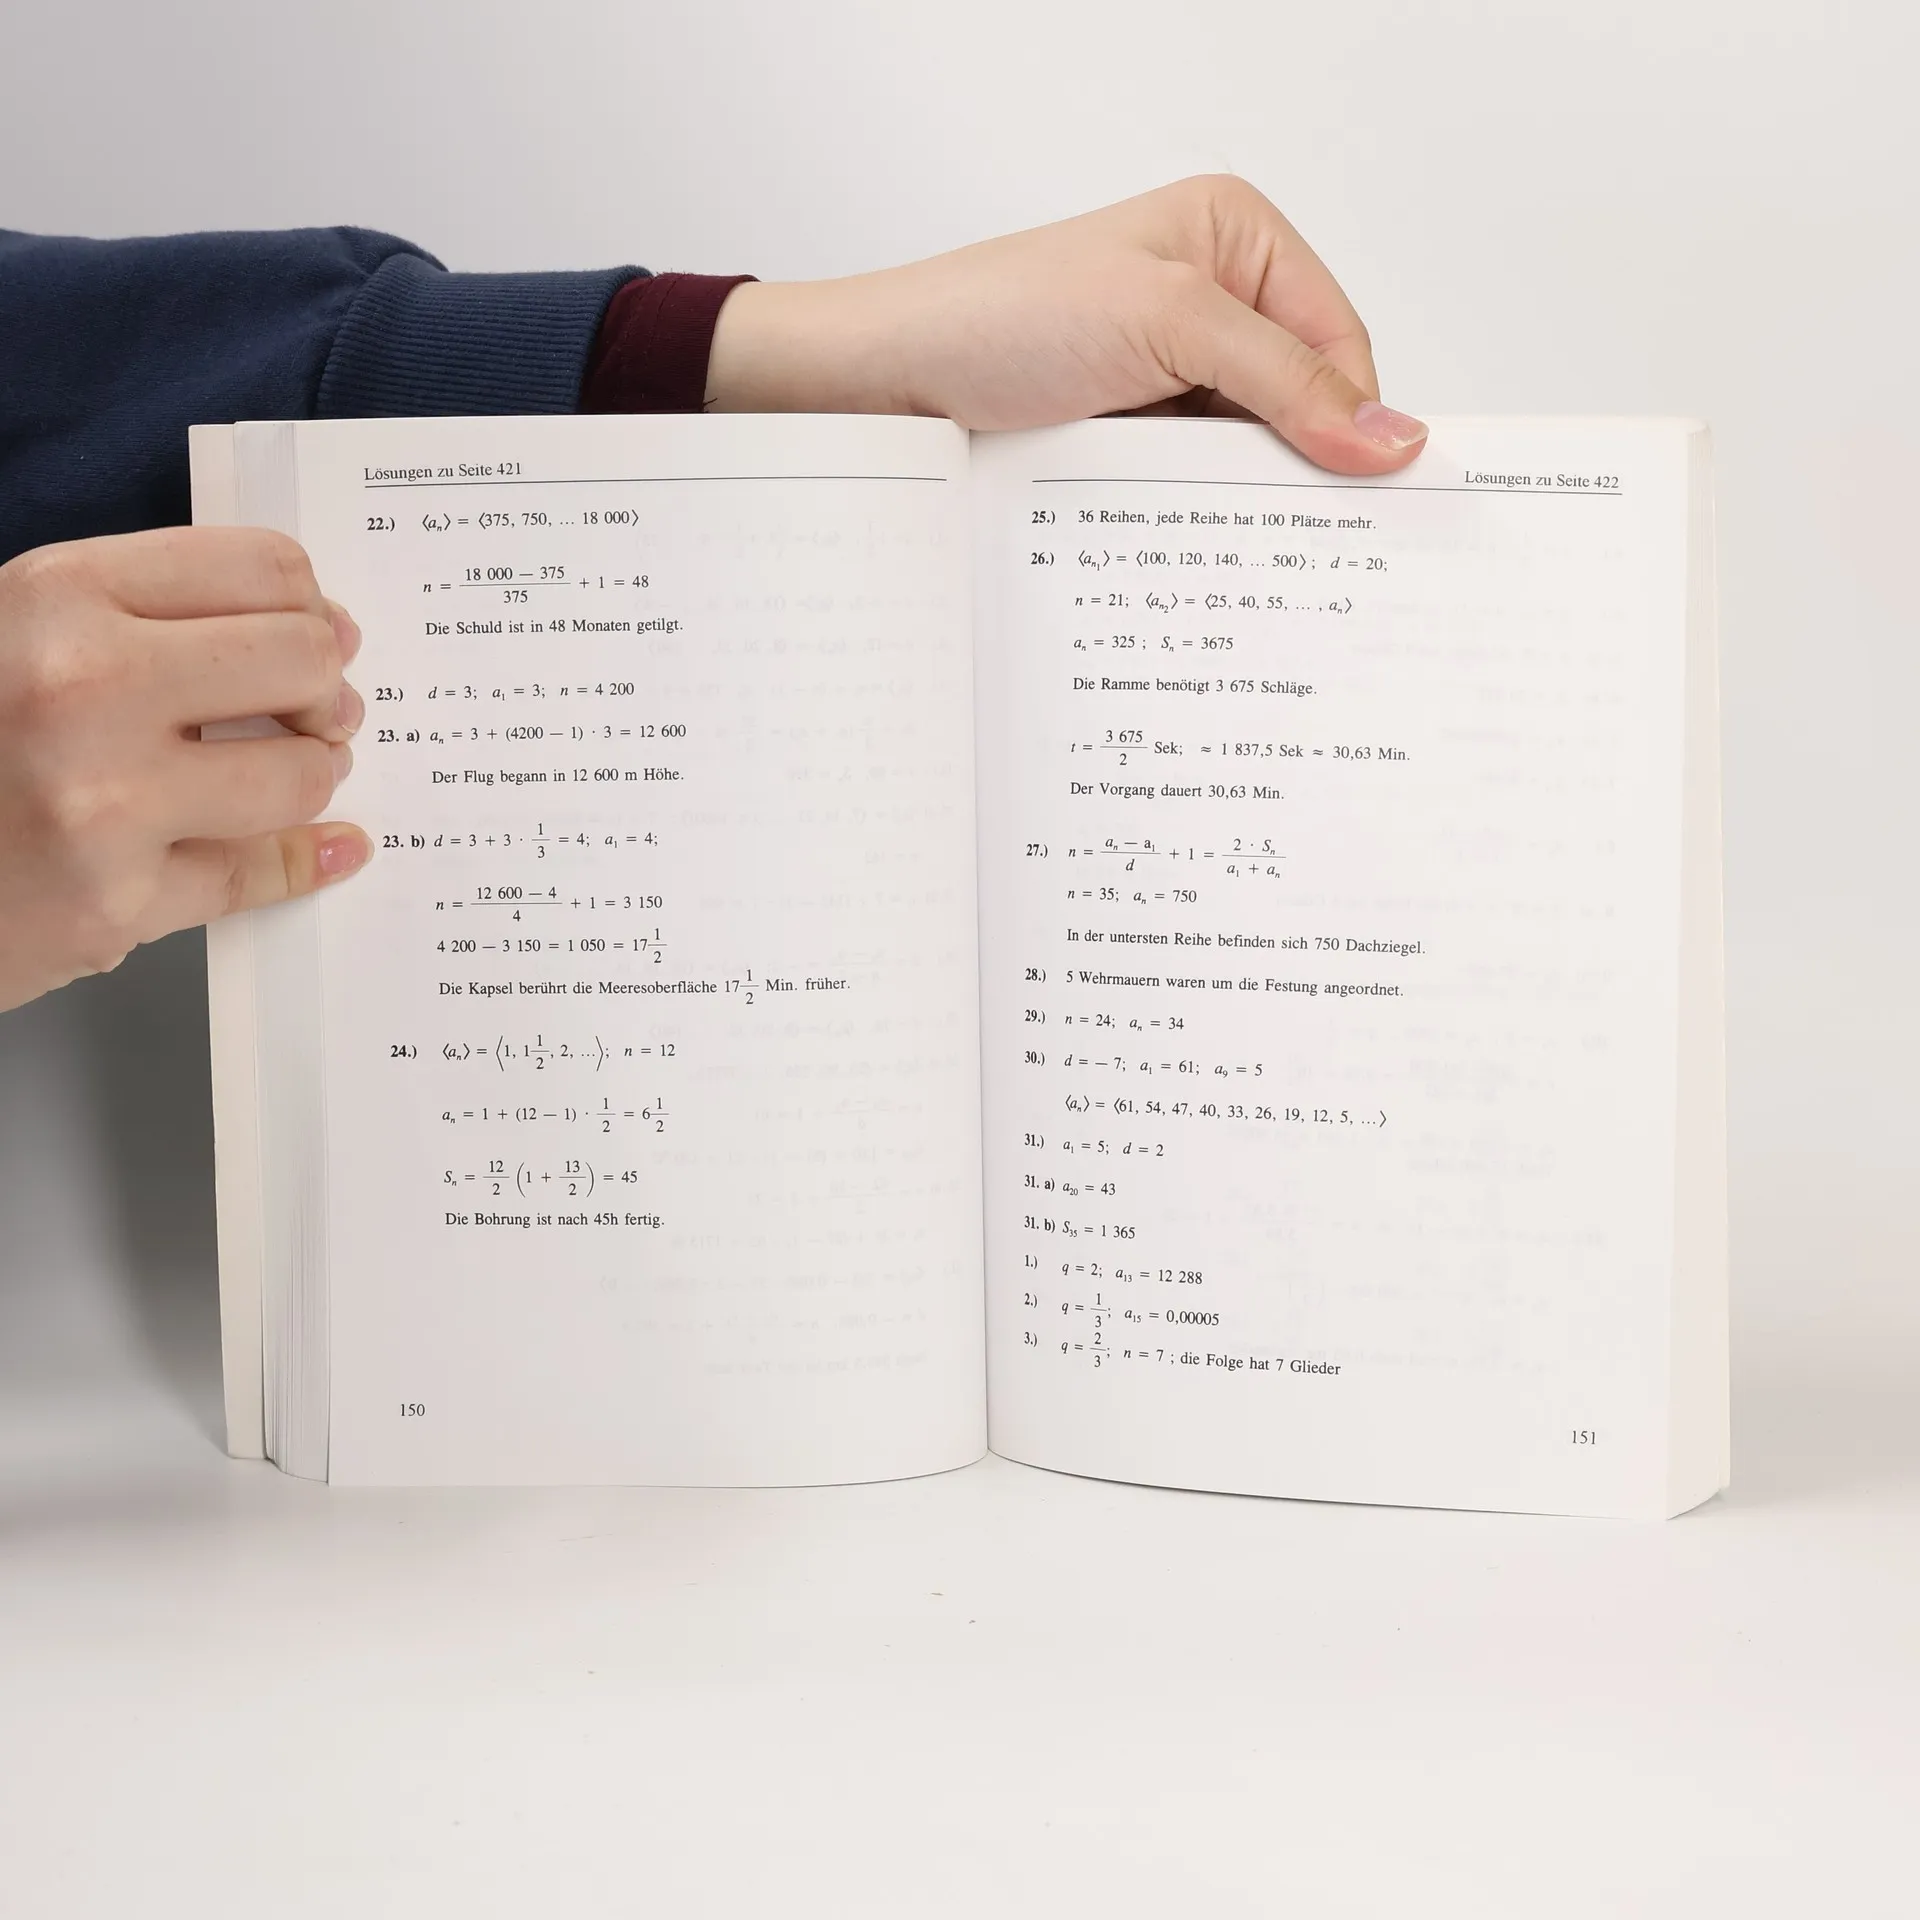 Lösungen zu Seite 421
22.) ⟨aₙ⟩ = ⟨375, 750, ... 18 000⟩
n = (18 000 — 375)/375 + 1 = 48
Die Schuld ist in 48 Monaten getilgt.
23.) d = 3; a₁ = 3; n = 4 200
23. a) aₙ = 3 + (4200 — 1) · 3 = 12 600
Der Flug begann in 12 600 m Höhe.
23. b) d = 3 + 3 · 1/3 = 4; a₁ = 4;
n = (12 600 — 4)/4 + 1 = 3 150
4 200 — 3 150 = 1 050 = 17 1/2
Die Kapsel berührt die Meeresoberfläche 17 1/2 Min. früher.
24.) ⟨aₙ⟩ = ⟨1, 1 1/2, 2, ...⟩; n = 12
aₙ = 1 + (12 — 1) · 1/2 = 6 1/2
Sₙ = 12/2 (1 + 13/2) = 45
Die Bohrung ist nach 45h fertig.
150
Lösungen zu Seite 422
25.) 36 Reihen, jede Reihe hat 100 Plätze mehr.
26.) ⟨aₙ₁⟩ = ⟨100, 120, 140, ... 500⟩; d = 20;
n = 21; ⟨aₙ₂⟩ = ⟨25, 40, 55, ... , aₙ⟩
aₙ = 325 ; Sₙ = 3675
Die Ramme benötigt 3 675 Schläge.
t = 3 675/2 Sek; ≈ 1 837,5 Sek ≈ 30,63 Min.
Der Vorgang dauert 30,63 Min.
27.) n = (aₙ — a₁)/d + 1 = (2 · Sₙ)/(a₁ + aₙ)
n = 35; aₙ = 750
In der untersten Reihe befinden sich 750 Dachziegel.
28.) 5 Wehrmauern waren um die Festung angeordnet.
29.) n = 24; aₙ = 34
30.) d = — 7; a₁ = 61; a₉ = 5
⟨aₙ⟩ = ⟨61, 54, 47, 40, 33, 26, 19, 12, 5, ...⟩
31.) a₁ = 5; d = 2
31. a) a₂₀ = 43
31. b) S₃₅ = 1 365
1.) q = 2; a₁₃ = 12 288
2.) q = 1/3; a₁₅ = 0,00005
3.) q = 2/3; n = 7 ; die Folge hat 7 Glieder
151